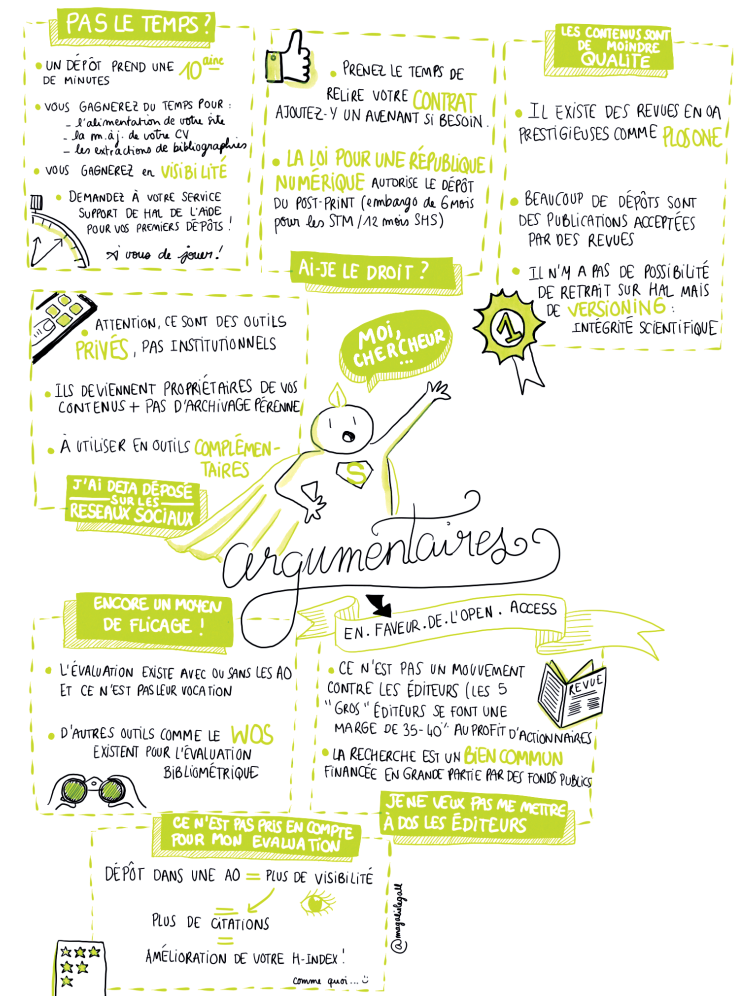 PAS LE TEMPS ?
• UN DÉPÔT PREND UNE 10aine
DE MINUTES
• VOUS GAGNEREZ DU TEMPS POUR :
– l'alimentation de votre site
– la m.à.j. de votre CV
– les extractions de bibliographies
• VOUS GAGNEREZ en VISIBILITÉ
• DEMANDEZ À VOTRE SERVICE
SUPPORT DE HAL DE L'AIDE
POUR VOS PREMIERS DÉPÔTS !
À vous de jouer !
• PRENEZ LE TEMPS DE
RELIRE VOTRE CONTRAT
AJOUTEZ-Y UN AVENANT SI BESOIN.
• LA LOI POUR UNE RÉPUBLIQUE
NUMÉRIQUE AUTORISE LE DÉPÔT
DU POST-PRINT (embargo de 6 mois
pour les STM / 12 mois SHS)
AI-JE LE DROIT ?
LES CONTENUS SONT
DE MOINDRE
QUALITE
• IL EXISTE DES REVUES EN OA
PRESTIGIEUSES COMME PLOS ONE
• BEAUCOUP DE DÉPÔTS SONT
DES PUBLICATIONS ACCEPTÉES
PAR DES REVUES
• IL N'Y A PAS DE POSSIBILITÉ
DE RETRAIT SUR HAL MAIS
DE VERSIONING :
INTÉGRITÉ SCIENTIFIQUE
1
• ATTENTION, CE SONT DES OUTILS
PRIVÉS, PAS INSTITUTIONNELS
• ILS DEVIENNENT PROPRIÉTAIRES DE VOS
CONTENUS + PAS D'ARCHIVAGE PÉRENNE
• À UTILISER EN OUTILS COMPLÉMEN-
TAIRES
J'AI DEJA DÉPOSÉ
SUR LES
RESEAUX SOCIAUX
MOI,
CHERCHEUR
...
S
argumentaires
EN . FAVEUR . DE . L'OPEN . ACCESS
ENCORE UN MOYEN
DE FLICAGE !
• L'ÉVALUATION EXISTE AVEC OU SANS LES AO
ET CE N'EST PAS LEUR VOCATION
• D'AUTRES OUTILS COMME LE WOS
EXISTENT POUR L'ÉVALUATION
BIBLIOMÉTRIQUE
• CE N'EST PAS UN MOUVEMENT
CONTRE LES ÉDITEURS (LES 5
"GROS" ÉDITEURS SE FONT UNE
MARGE DE 35-40% AU PROFIT D'ACTIONNAIRES
• LA RECHERCHE EST UN BIEN COMMUN
FINANCÉE EN GRANDE PARTIE PAR DES FONDS PUBLICS
REVUE
JE NE VEUX PAS ME METTRE
À DOS LES ÉDITEURS
CE N'EST PAS PRIS EN COMPTE
POUR MON EVALUATION
DÉPÔT DANS UNE AO = PLUS DE VISIBILITÉ
=
PLUS DE CITATIONS
=
AMÉLIORATION DE VOTRE H-INDEX !
comme quoi...
@magalielegall